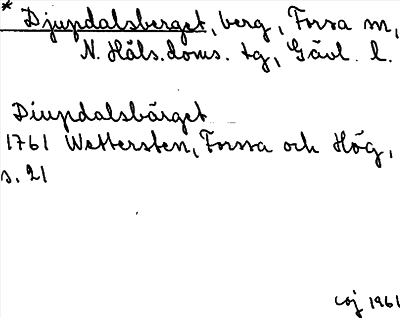 * Djupdalsberget, berg, Forsa sn,
N. Häls. doms. tg, Gävl. l.
Diupdalsbärget
1761 Wettersten, Forssa och Hög,
s. 21
1961